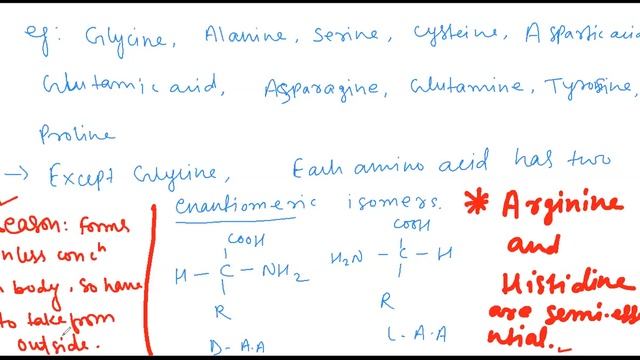 eg: Glycine, Alanine, Serine, Cysteine, Aspartic acid
Glutamic acid, Asparagine, Glutamine, Tyrosine,
Proline
→ Except Glycine, Each amino acid has two
enantiomeric isomers.
eason: forms
n less conc h
body, so have
to take from
outside.
COOH
H - C - NH2
R
D-A.A
COOH
H2N - C - H
R
L-A.A
* Arginine
and
Histidine
are semi-esse
ntial.